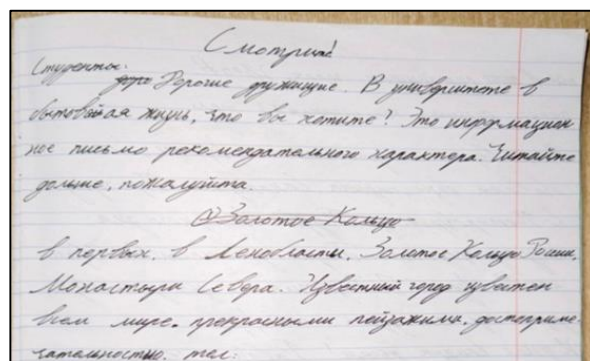 Смотри!
Студенты!
Дорогие дружище. В университете в
бытовая жизнь, что вы хотите? Это информацион
ное письмо рекомендательного характера. Читайте
дольше, пожалуйста.
Золотое Кольцо
в первых, в Ленобласти, Золотое Кольцо России,
Монастыри Севера. Известный город известен
всем мире, прекрасными пейзажими, достоприме
чательностью, тел: